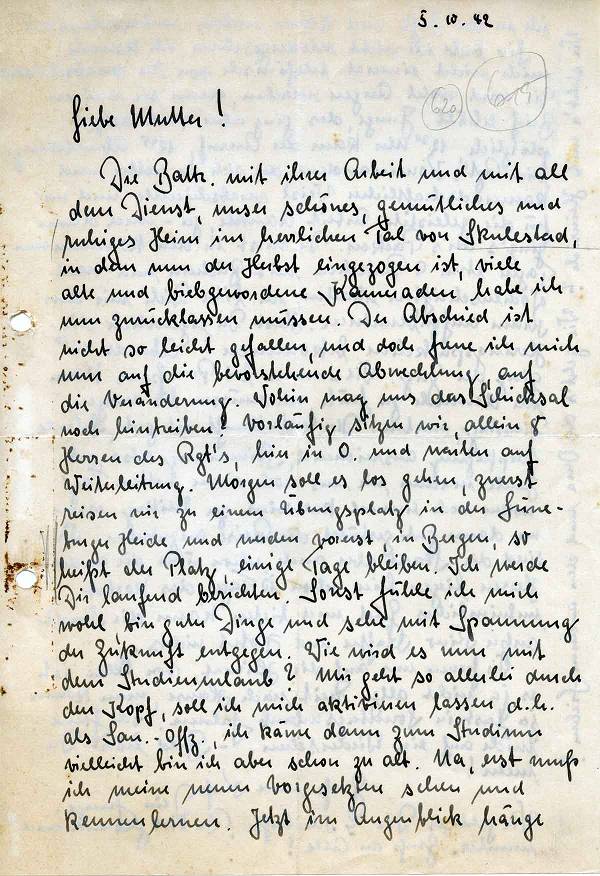 5.10.42
620
619
Liebe Mutter!
Die Battr. mit ihrer Arbeit und mit all
dem Dienst, unser schönes, gemütliches und
ruhiges Heim im herrlichen Tal von Skulestad,
in dem nun der Herbst eingezogen ist, viele
alte und liebgewordene Kameraden habe ich
nun zurücklassen müssen. Der Abschied ist
nicht so leicht gefallen, und doch freue ich mich
nun auf die bevorstehende Abwechlung, auf
die Veränderung. Wohin mag uns das Schicksal
noch hintreiben? Vorläufig sitzen wir, allein 8
Herren des Rgt's, hier in O. und warten auf
Weiterleitung. Morgen soll es los gehen, zuerst
reisen wir zu einem Übungsplatz in der Lüne-
burger Heide und werden vorerst, in Bergen, so
heißt der Platz, einige Tage bleiben. Ich werde
Dir laufend berichten. Sonst fühle ich mich
wohl bin guter Dinge und sehe mit Spannung
der Zukunft entgegen. Wie wird es nun mit
dem Studienurlaub? Mir geht so allerlei durch
den Kopf, soll ich mich aktivieren lassen d.h.
als San.-Offz., ich käme dann zum Studium
vielleicht bin ich aber schon zu alt. Na, erst muß
ich meine neuen Vorgesetzten sehen und
kennenlernen. Jetzt im Augenblick hänge